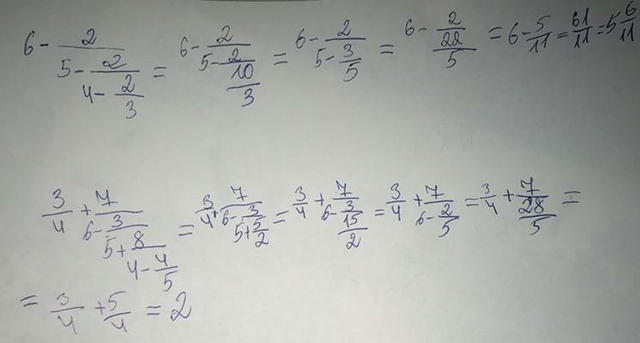 6 - 2/(5 - 2/(4 - 2/3)) = 6 - 2/(5 - 2/(10/3)) = 6 - 2/(5 - 3/5) = 6 - 2/(22/5) = 6 - 5/11 = 61/11 = 5 6/11
3/4 + 7/(6 - 3/(5 + 8/(4 - 4/5))) = 3/4 + 7/(6 - 3/(5 + 5/2)) = 3/4 + 7/(6 - 3/(15/2)) = 3/4 + 7/(6 - 2/5) = 3/4 + 7/(28/5) =
= 3/4 + 5/4 = 2